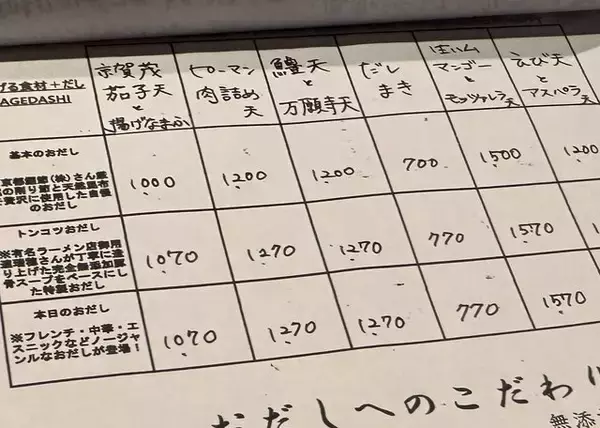 げる食材+だし
AGEDASHI
京賀茂
茄子天
と
揚げなまふ
ピーマン
肉詰め
天
鱧天
と
万願寺天
だし
まき
生ハム
マンゴーと
モッツァレラ天
えび天
と
アスパラ天
基本のおだし
の削り節と天然昆布
贅沢に使用した自慢
のおだし
1000
1200
1200
700
1500
1200
トンコツおだし
※有名ラーメン店御用
さんが丁寧に造
り上げた完全無添加豚
骨スープをベースにし
た特製おだし
1070
1270
1270
770
1570
本日のおだし
※フレンチ・中華・エ
スニックなどノージャ
ンルなおだしが登場!
1070
1270
1270
770
1570
おだしへのこだわり
無添